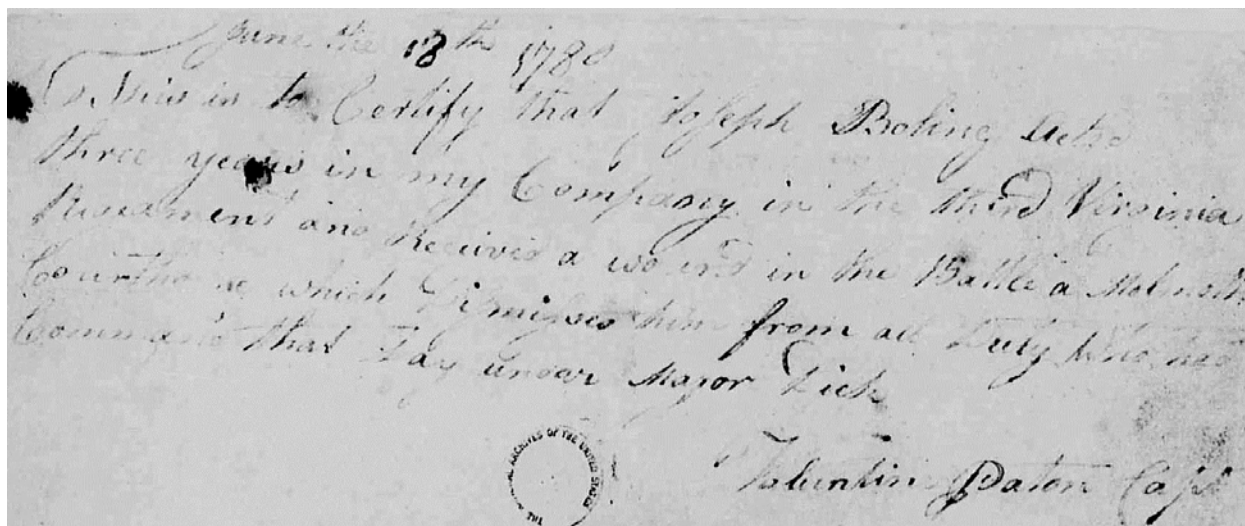 June the 18th 1780
This is to Certify that Joseph Boling
three years in my Company in the third Virginia
and Receive a wound in the Battle a
which him from all Duty who had
Command that Day under Major Dick
Valuntin Paton Capt
THE NATIONAL ARCHIVES OF THE UNITED STATES